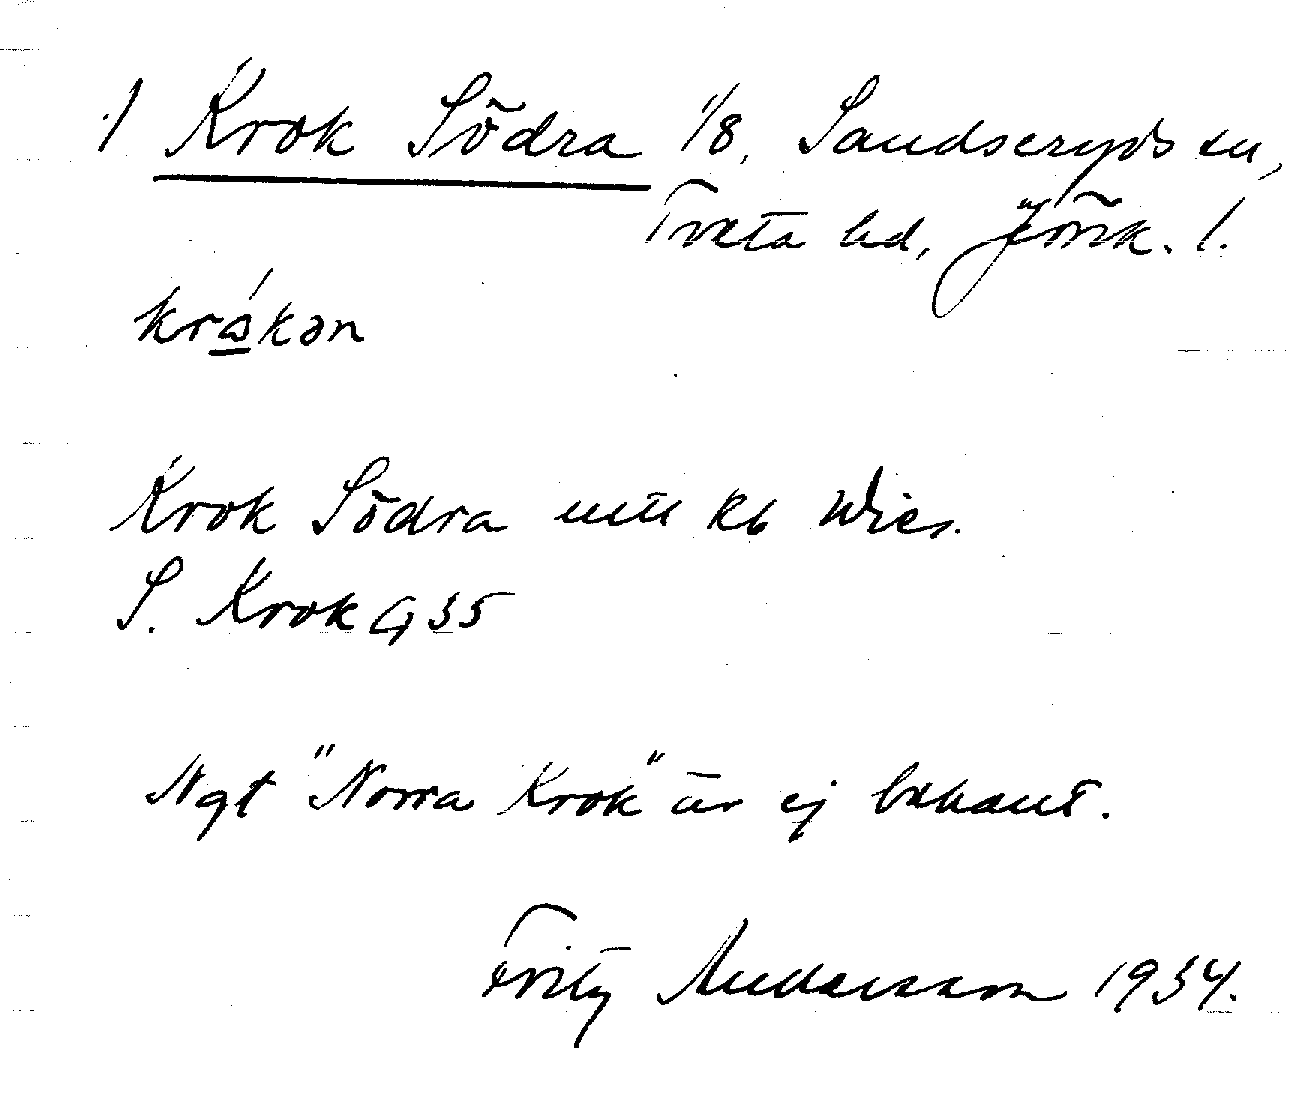 1 Krok Södra 1/8, Sandseryds sn,
Tveta hd, Jönk. l.
krókən
Krok Södra 1/8 Wies.
S. Krok G 35
Ngt "Norra Krok" är ej bekant.
Fritz Andersson 1934.